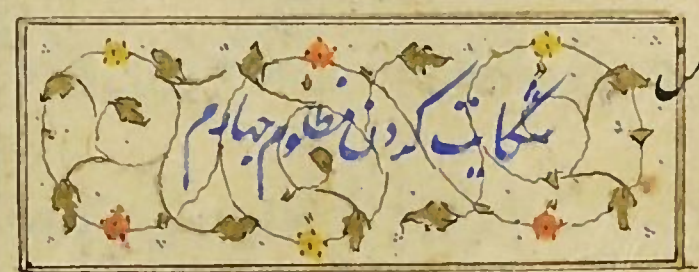 شکایت کردن مظلوم چهارم